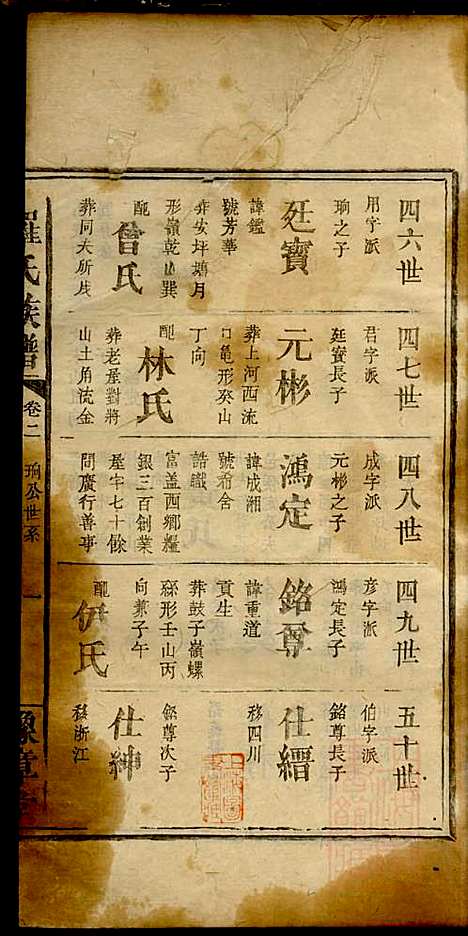 四六世
用字派
珦之子
廷寶
諱鑑
號芳華
葬安坪塘月
形嶺乾山巽
配
曾氏
葬同夫所戌
四七世
君字派
廷寶長子
元彬
葬上河西流
口亀形癸山
丁向
配
林氏
葬老屋對將
山土角流金
四八世
成字派
元彬之子
鴻定
諱成湘
號希舍
誥職
富盖西鄉糧
銀三百創業
屋宇七十餘
間廣行善事
四九世
彦字派
鴻定長子
銘尊
諱重道
貢生
葬鼓子嶺螺
絲形壬山丙
向兼子午
配
伊氏
五十世
伯字派
銘尊長子
仕縉
移四川
銘尊次子
仕紳
移浙江
羅氏族譜
卷二
珦公世系
一
豫章堂